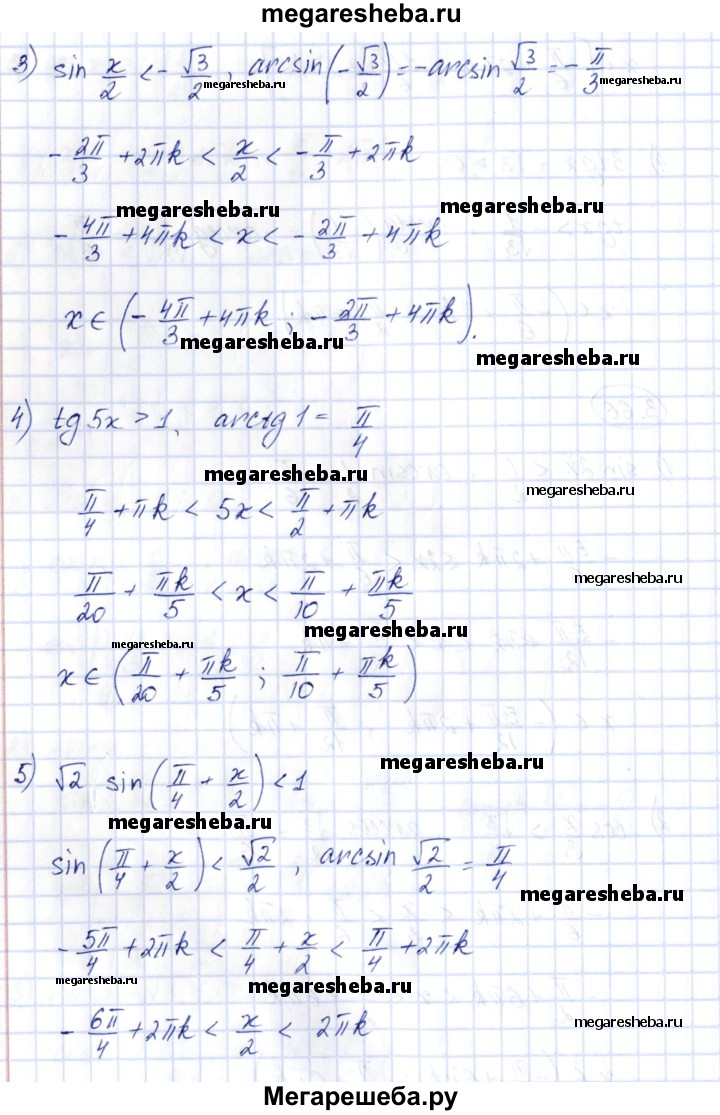 megaresheba.ru
3) sin x/2 < -√3/2, arcsin(-√3/2) = -arcsin √3/2 = -π/3
megaresheba.ru megaresheba.ru
-2π/3 + 2πk < x/2 < -π/3 + 2πk
megaresheba.ru megaresheba.ru
-4π/3 + 4πk < x < -2π/3 + 4πk
x ∈ (-4π/3 + 4πk ; -2π/3 + 4πk).
megaresheba.ru megaresheba.ru
4) tg 5x > 1, arctg 1 = π/4
megaresheba.ru megaresheba.ru
π/4 + πk < 5x < π/2 + πk
megaresheba.ru
π/20 + πk/5 < x < π/10 + πk/5
megaresheba.ru
megaresheba.ru
x ∈ (π/20 + πk/5 ; π/10 + πk/5)
megaresheba.ru
5) √2 sin(π/4 + x/2) < 1
megaresheba.ru
sin(π/4 + x/2) < √2/2, arcsin √2/2 = π/4
megaresheba.ru
-5π/4 + 2πk < π/4 + x/2 < π/4 + 2πk
megaresheba.ru megaresheba.ru
-6π/4 + 2πk < x/2 < 2πk
megaresheba.ru
Мегарешеба.ру